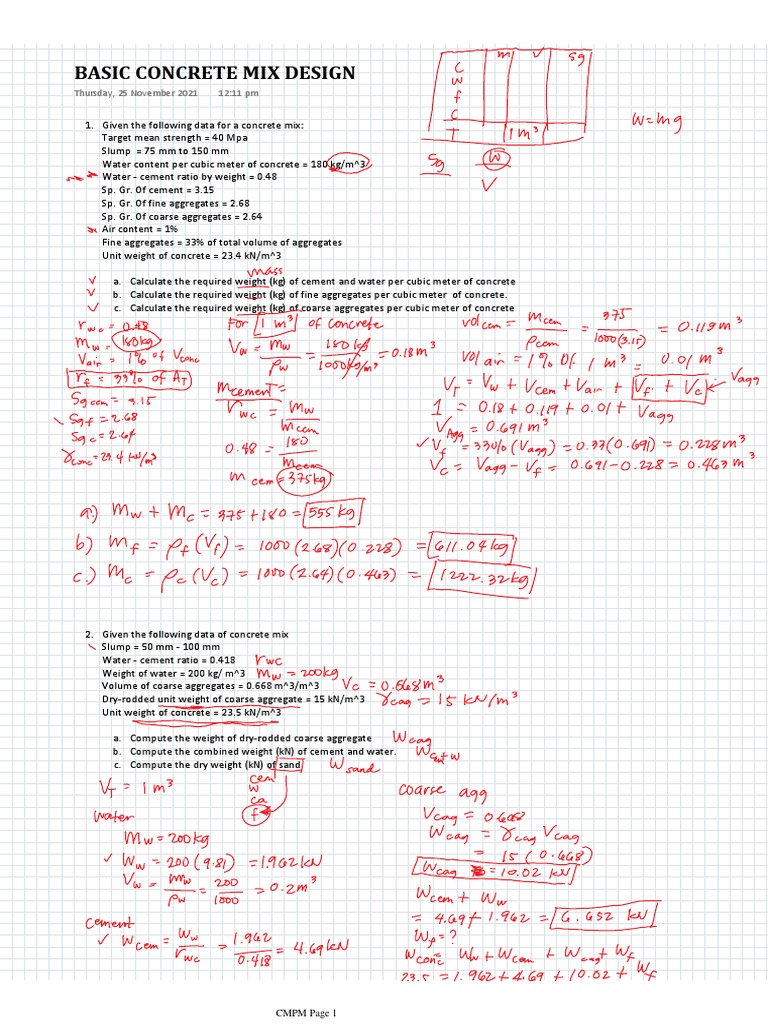 BASIC CONCRETE MIX DESIGN
Thursday, 25 November 2021 12:11 pm
m V Sg
C
W
f
C
T 1 m³
Sg W
V
W = mg
1. Given the following data for a concrete mix:
Target mean strength = 40 Mpa
Slump = 75 mm to 150 mm
Water content per cubic meter of concrete = 180 kg/m^3
Water - cement ratio by weight = 0.48
Sp. Gr. Of cement = 3.15
Sp. Gr. Of fine aggregates = 2.68
Sp. Gr. Of coarse aggregates = 2.64
Air content = 1%
Fine aggregates = 33% of total volume of aggregates
Unit weight of concrete = 23.4 kN/m^3
mass
a. Calculate the required weight (kg) of cement and water per cubic meter of concrete
b. Calculate the required weight (kg) of fine aggregates per cubic meter of concrete.
c. Calculate the required weight (kg) of coarse aggregates per cubic meter of concrete
r wc = 0.48
Mw = 180kg
Vair = 1% of Vconc
rf = 33% of AT
Sg cem = 3.15
Sg f = 2.68
Sg c = 2.64
γconc = 23.4 kN/m³
For 1 m³ of concrete
Vw = Mw / ρw = 180 kg / 1000 kg/m³ = 0.18m³
Mcement =
rwc = Mw / Mcem
0.48 = 180 / Mcem
m cem = 375kg
Vol cem = Mcem / ρcem = 375 / 1000(3.15) = 0.119 m³
Vol air = 1% of 1 m³ = 0.01 m³
VT = Vw + Vcem + Vair + Vf + Vc Vagg
1 = 0.18 + 0.119 + 0.01 + Vagg
VAgg = 0.691 m³
Vf = 33% (Vagg) = 0.33(0.691) = 0.228 m³
Vc = Vagg - Vf = 0.691 - 0.228 = 0.463 m³
a.) Mw + Mc = 375 + 180 = 555 kg
b) Mf = ρf (Vf) = 1000 (2.68)(0.228) = 611.04 kg
c.) Mc = ρc (Vc) = 1000 (2.64)(0.463) = 1222.32 kg
2. Given the following data of concrete mix
Slump = 50 mm - 100 mm
Water - cement ratio = 0.418 rwc
Weight of water = 200 kg/ m^3 Mw = 200kg
Volume of coarse aggregates = 0.668 m^3/m^3 Vc = 0.668 m³
Dry-rodded unit weight of coarse aggregate = 15 kN/m^3 γcag = 15 kN/m³
Unit weight of concrete = 23.5 kN/m^3
a. Compute the weight of dry-rodded coarse aggregate Wcag
b. Compute the combined weight (kN) of cement and water. Wcem+w
c. Compute the dry weight (kN) of sand Wsand
VT = 1 m³
cem
w
ca
f
water
Mw = 200kg
Ww = 200 (9.81) = 1.962 kN
Vw = Mw / ρw = 200 / 1000 = 0.2 m³
cement
Wcem = Ww / rwc = 1.962 / 0.418 = 4.69 kN
coarse agg
Vcag = 0.668
Wcag = γcag Vcag
= 15 (0.668)
Wcag = 10.02 kN
Wcem + Ww
= 4.69 + 1.962 = 6.652 kN
Wf = ?
Wconc = Ww + Wcem + Wcag + Wf
23.5 = 1.962 + 4.69 + 10.02 + Wf
CMPM Page 1